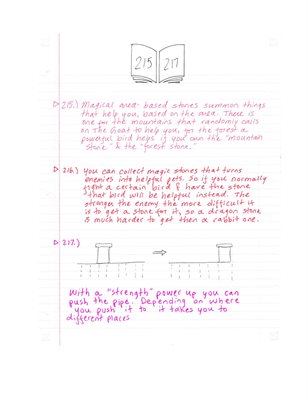 215 217
▷ 215.) Magical area-based stones summon things
that help you, based on the area. There is
one for the mountains that randomly calls
on The Goat to help you, for the forest a
powerful bird helps if you own the "mountain
stone." & the "forest stone."
▷ 216.) You can collect magic stones that turns
enemies into helpful pets. So if you normally
fight a certain bird & have the stone
that bird will be helpful instead. The
stronger the enemy the more difficult it
is to get a stone for it, so a dragon stone
is much harder to get then a rabbit one.
▷ 217.)
With a "strength" power up you can
push the pipe. Depending on where
you push it to it takes you to
different places